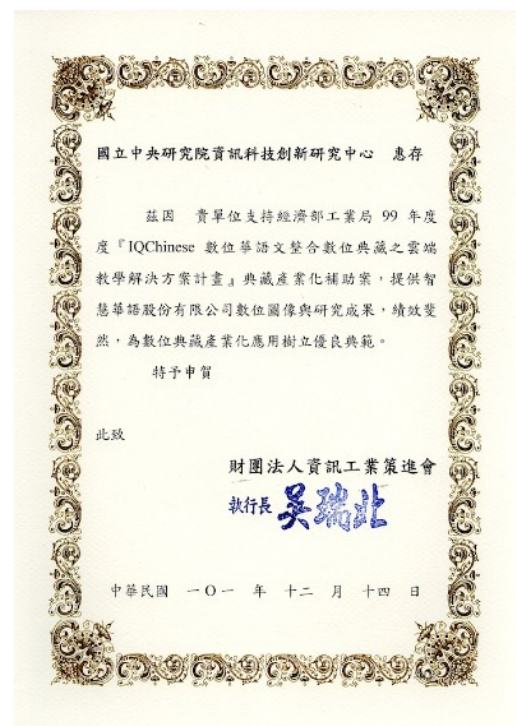 國立中央研究院資訊科技創新研究中心 惠存
茲因 貴單位支持經濟部工業局 99 年度
度『IQChinese 數位華語文整合數位典藏之雲端
教學解決方案計畫』典藏產業化補助案，提供智
慧華語股份有限公司數位圖像與研究成果，績效斐
然，為數位典藏產業化應用樹立優良典範。
特予申賀
此致
財團法人資訊工業策進會
執行長 吳瑞北
中華民國 一〇一 年 十二 月 十四 日